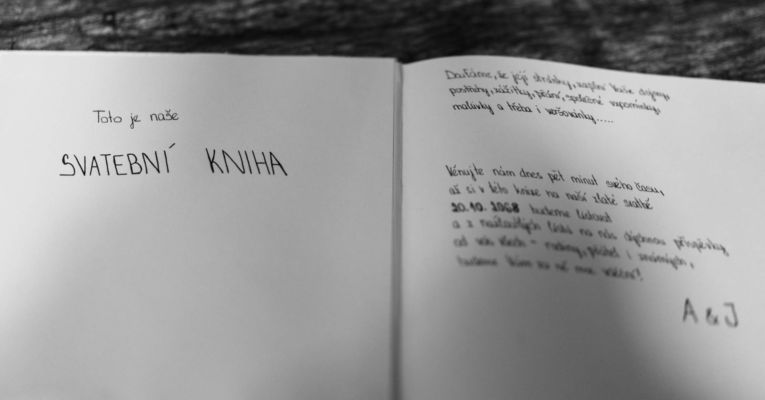 Toto je naše
SVATEBNÍ KNIHA
Doufáme, že její stránky, zaplní Vaše dojmy,
postřehy, zážitky, přání, společné vzpomínky,
malůvky a třeba i veršovánky.....
Věnujte nám dnes pět minut svého času,
až si v této knize na naší zlaté svatbě
20.10.2068 budeme listovat
a z nažloutlých listů na nás dýchnou příspěvky
od vás všech - rodiny, přátel i známých,
budeme Vám za ně moc vděční!
A & J